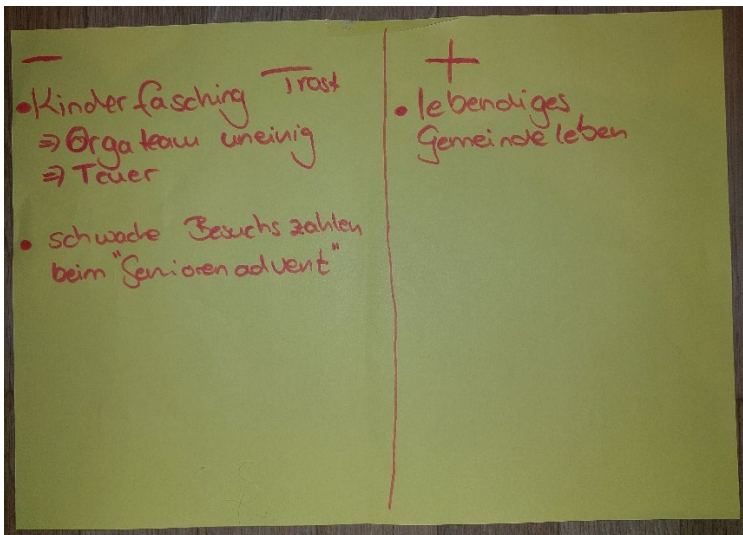 −
• Kinderfasching Trost
⇒ Orgateam uneinig
⇒ Teuer
• schwache Besuchszahlen
beim "Seniorenadvent"
+
• lebendiges
Gemeindeleben